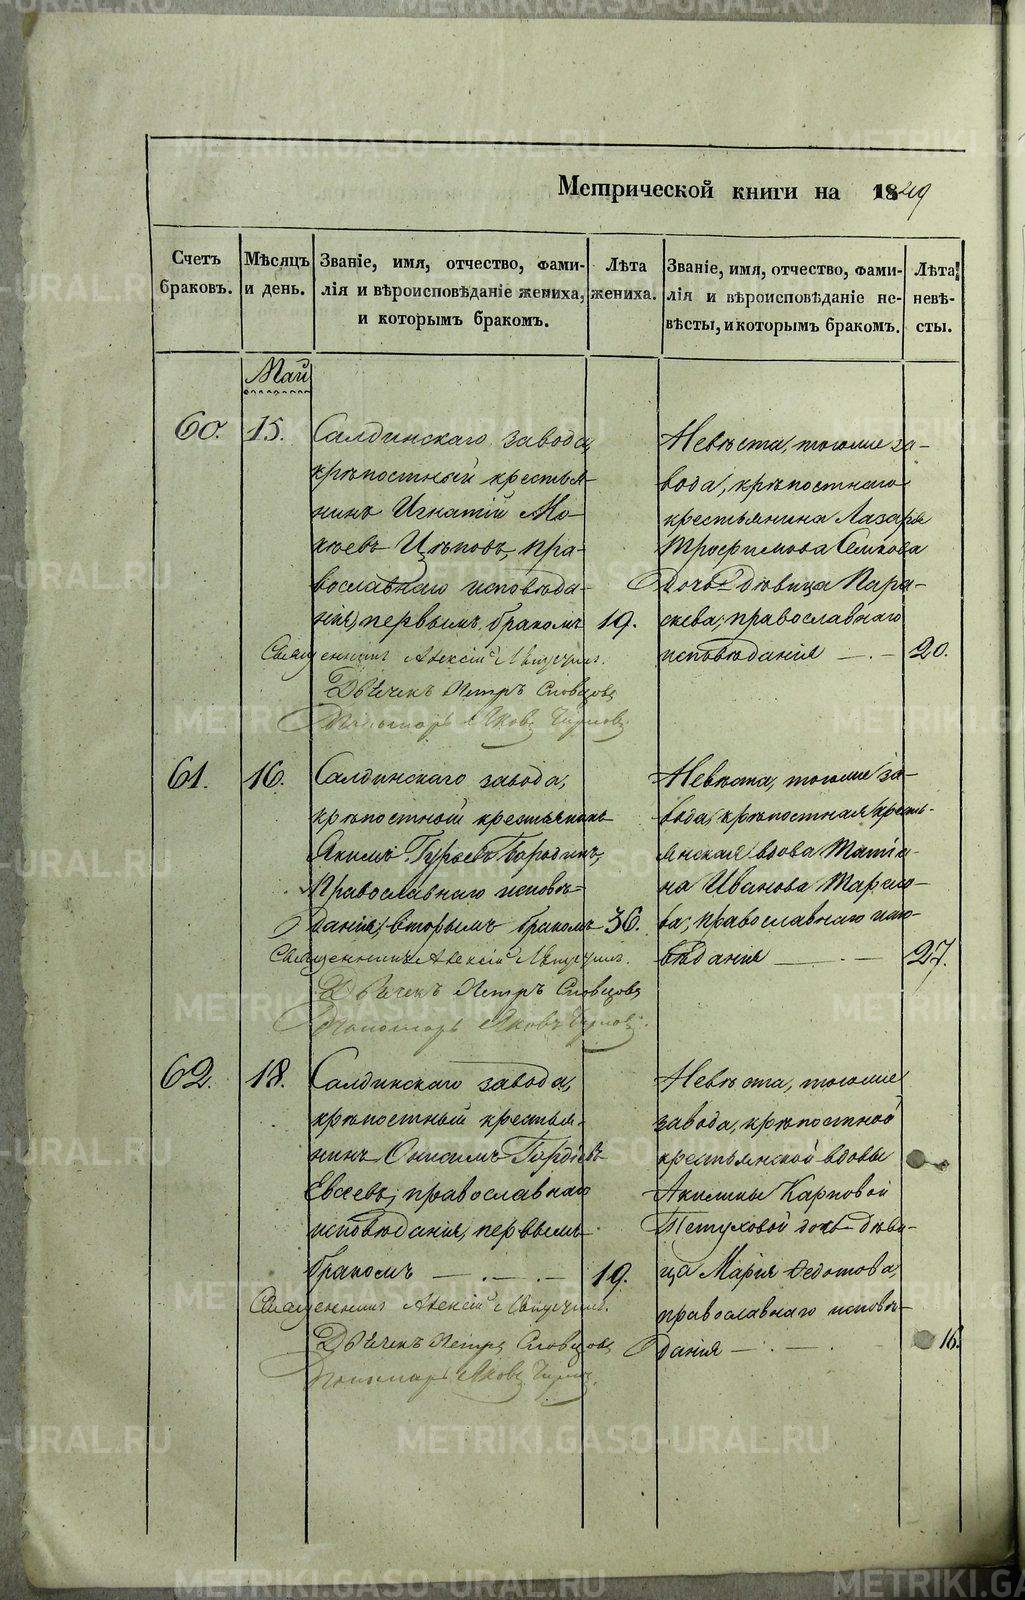 Метрической книги на 1849
Счетъ браковъ.
Мѣсяцъ и день.
Званіе, имя, отчество, фами-
лія и вѣроисповѣданіе жениха,
и которымъ бракомъ.
Лѣта жениха.
Званіе, имя, отчество, фами-
лія и вѣроисповѣданіе не-
вѣсты, и которымъ бракомъ.
Лѣта невѣ-
сты.
Май
60. 15.
Салдинскаго завода,
крѣпостный крестья-
нинъ Игнатій Мо-
кѣевъ Цѣповъ, пра-
вославнаго исповѣда-
нія, первымъ бракомъ 19.
Священникъ Алексій
Дьячекъ Петръ Словцовъ
Пономарь Яковъ
Невѣста, тогоже за-
вода, крѣпостнаго
крестьянина Лазаря
Трофимова
дочь дѣвица Пара-
скева, православнаго
исповѣданія — . — 20.
61. 16.
Салдинскаго завода,
крѣпостной крестьянинъ
Якимъ Гурьевъ Бородинъ,
православнаго исповѣ=
данія, вторымъ бракомъ 36.
Священникъ Алексій
Дьячекъ Петръ Словцовъ
Пономарь Яковъ
Невѣста, тогоже за-
вода, крѣпостная кресть-
янская вдова Татія-
на Иванова
православнаго испо-
вѣданія — . — 27.
62. 18.
Салдинскаго завода,
крѣпостный крестья-
нинъ Онисимъ Гордѣевъ
Евсеевъ, православнаго
исповѣданія, первымъ
бракомъ — . — . — 19.
Священникъ Алексій
Дьячекъ Петръ Словцовъ
Пономарь Яковъ
Невѣста, тогоже
завода, крѣпостной
крестьянской вдовы
Акилины Карповой
Петуховой дочь дѣви-
ца Марія Ѳедотова,
православнаго исповѣ-
данія — . — . 16.
METRIKI.GASO-URAL.RU